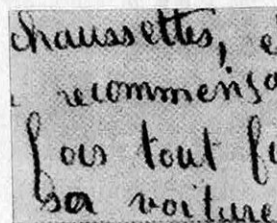 chaussettes, e
recommensa
fois tout fu
sa voiture